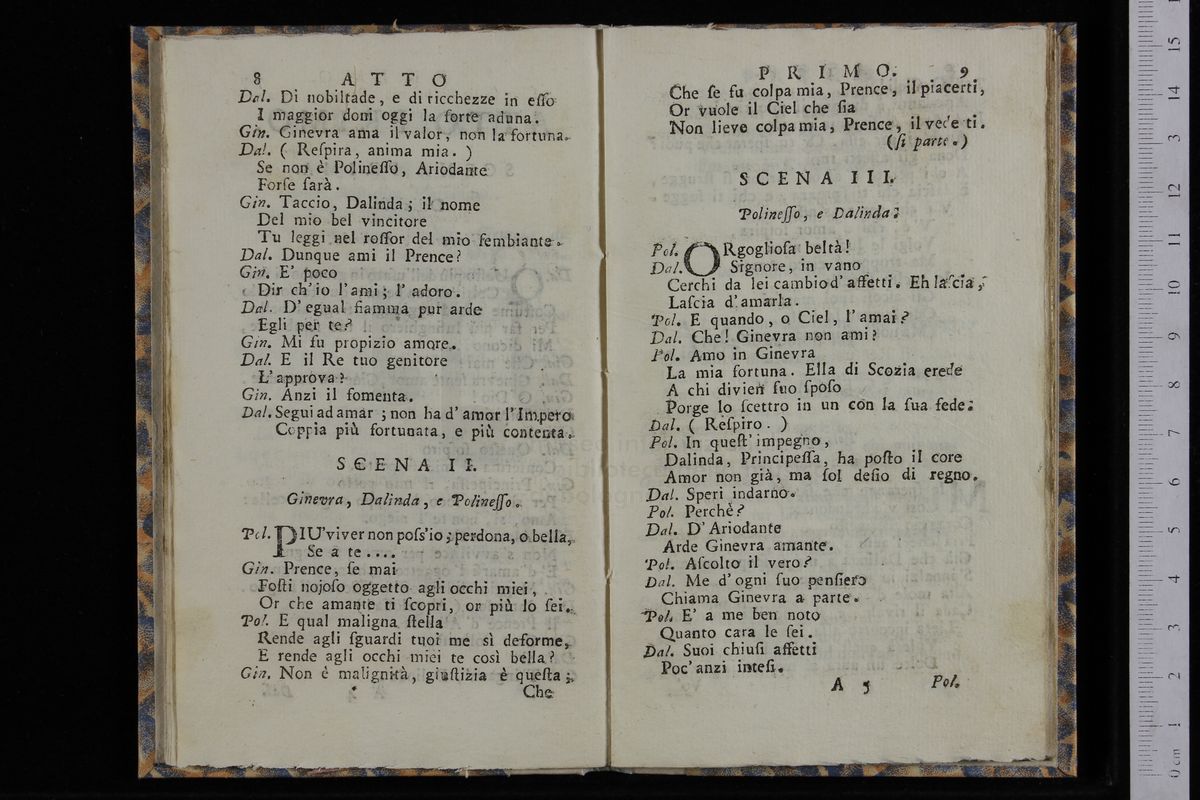 8 ATTO
Dal. Di nobiltade, e di ricchezze in eſſo
I maggior doni oggi la ſorte aduna.
Gin. Ginevra ama il valor, non la fortuna.
Dal. ( Reſpira, anima mia. )
Se non è Polineſſo, Ariodante
Forſe ſarà.
Gin. Taccio, Dalinda; il nome
Del mio bel vincitore
Tu leggi nel roſſor del mio ſembiante.
Dal. Dunque ami il Prence?
Gin. E' poco
Dir ch'io l'ami; l' adoro.
Dal. D' egual fiamma pur arde
Egli per te?
Gin. Mi fu propizio amore.
Dal. E il Re tuo genitore
L' approva?
Gin. Anzi il fomenta.
Dal. Segui ad amar; non ha d' amor l'Impero
Coppia più fortunata, e più contenta.
SCENA II.
Ginevra, Dalinda, e Polineſſo.
Pol. PIU' viver non poſs'io; perdona, o bella,
Se a te ....
Gin. Prence, ſe mai
Foſti nojoſo oggetto agli occhi miei,
Or che amante ti ſcopri, or più lo ſei.
Pol. E qual maligna ſtella
Rende agli ſguardi tuoi me sì deforme,
E rende agli occhi miei te così bella?
Gin. Non è malignità, giuſtizia è queſta;
Che
PRIMO. 9
Che ſe fu colpa mia, Prence, il piacerti,
Or vuole il Ciel che ſia
Non lieve colpa mia, Prence, il vederti.
(ſi parte.)
SCENA III.
Polineſſo, e Dalinda.
Pol. ORgoglioſa beltà!
Dal. Signore, in vano
Cerchi da lei cambio d' affetti. Eh laſcia,
Laſcia d' amarla.
Pol. E quando, o Ciel, l' amai?
Dal. Che! Ginevra non ami?
Pol. Amo in Ginevra
La mia fortuna. Ella di Scozia erede
A chi divien ſuo ſpoſo
Porge lo ſcettro in un con la ſua fede.
Dal. ( Reſpiro. )
Pol. In queſt' impegno,
Dalinda, Principeſſa, ha poſto il core
Amor non già, ma ſol deſio di regno.
Dal. Speri indarno.
Pol. Perchè?
Dal. D' Ariodante
Arde Ginevra amante.
Pol. Aſcolto il vero?
Dal. Me d' ogni ſuo penſiero
Chiama Ginevra a parte.
Pol. E' a me ben noto
Quanto cara le ſei.
Dal. Suoi chiuſi affetti
Poc' anzi inteſi.
A 5 Pol.